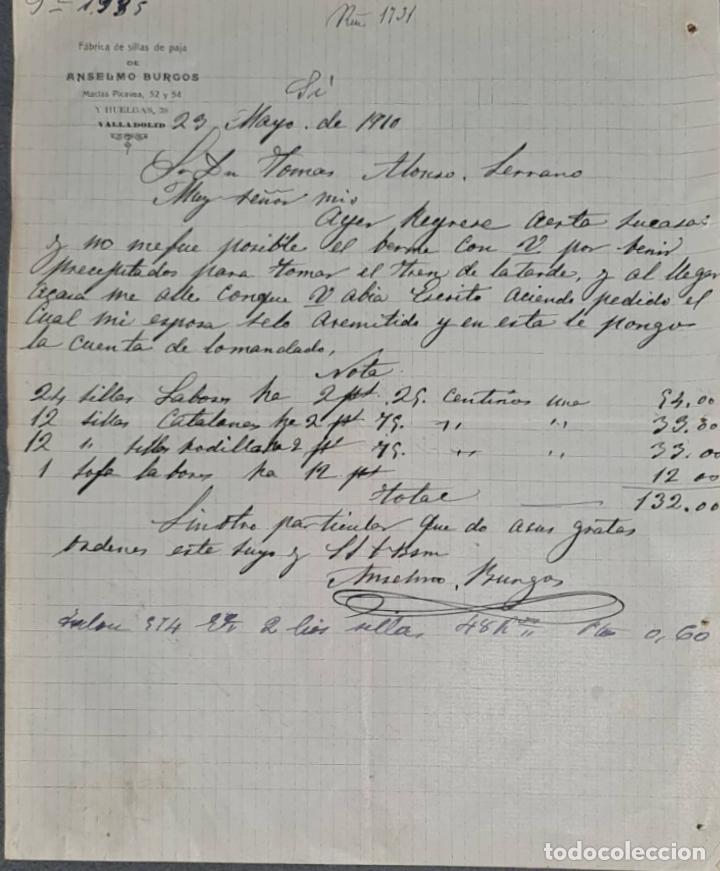 1935
Num 1731
Fábrica de sillas de paja
DE
ANSELMO BURGOS
Macías Picavea, 52 y 54
Y HUELGAS, 28
VALLADOLID
23 Mayo de 1910
Sr Dn Tomas Alonso Serrano
Muy señor mio
Ayer Regrese aesta sucasa
y no mefue posible el berme con V por benir
precepitados para tomar el tren de latarde, y al llegar
acasa me alle conque V abia Escrito aciendo pedido el
Cual mi esposa selo aremitido y en esta le pongo
la cuenta de lomandado,
Nota
24 sillas Labores ha 2 pts 25 centimos una 54.00
12 sillas Catalanas ha 2 pts 75 " " 33.00
12 " sillas rodillas ha 2 pts 75 " " 33.00
1 sofa labores ha 12 pts 12 00
total 132.00
Sinotro particular que do asus gratas
hordenes este suyo y SS
Anselmo Burgos
374 2 lios sillas 48 K 0,60
todocoleccion.net